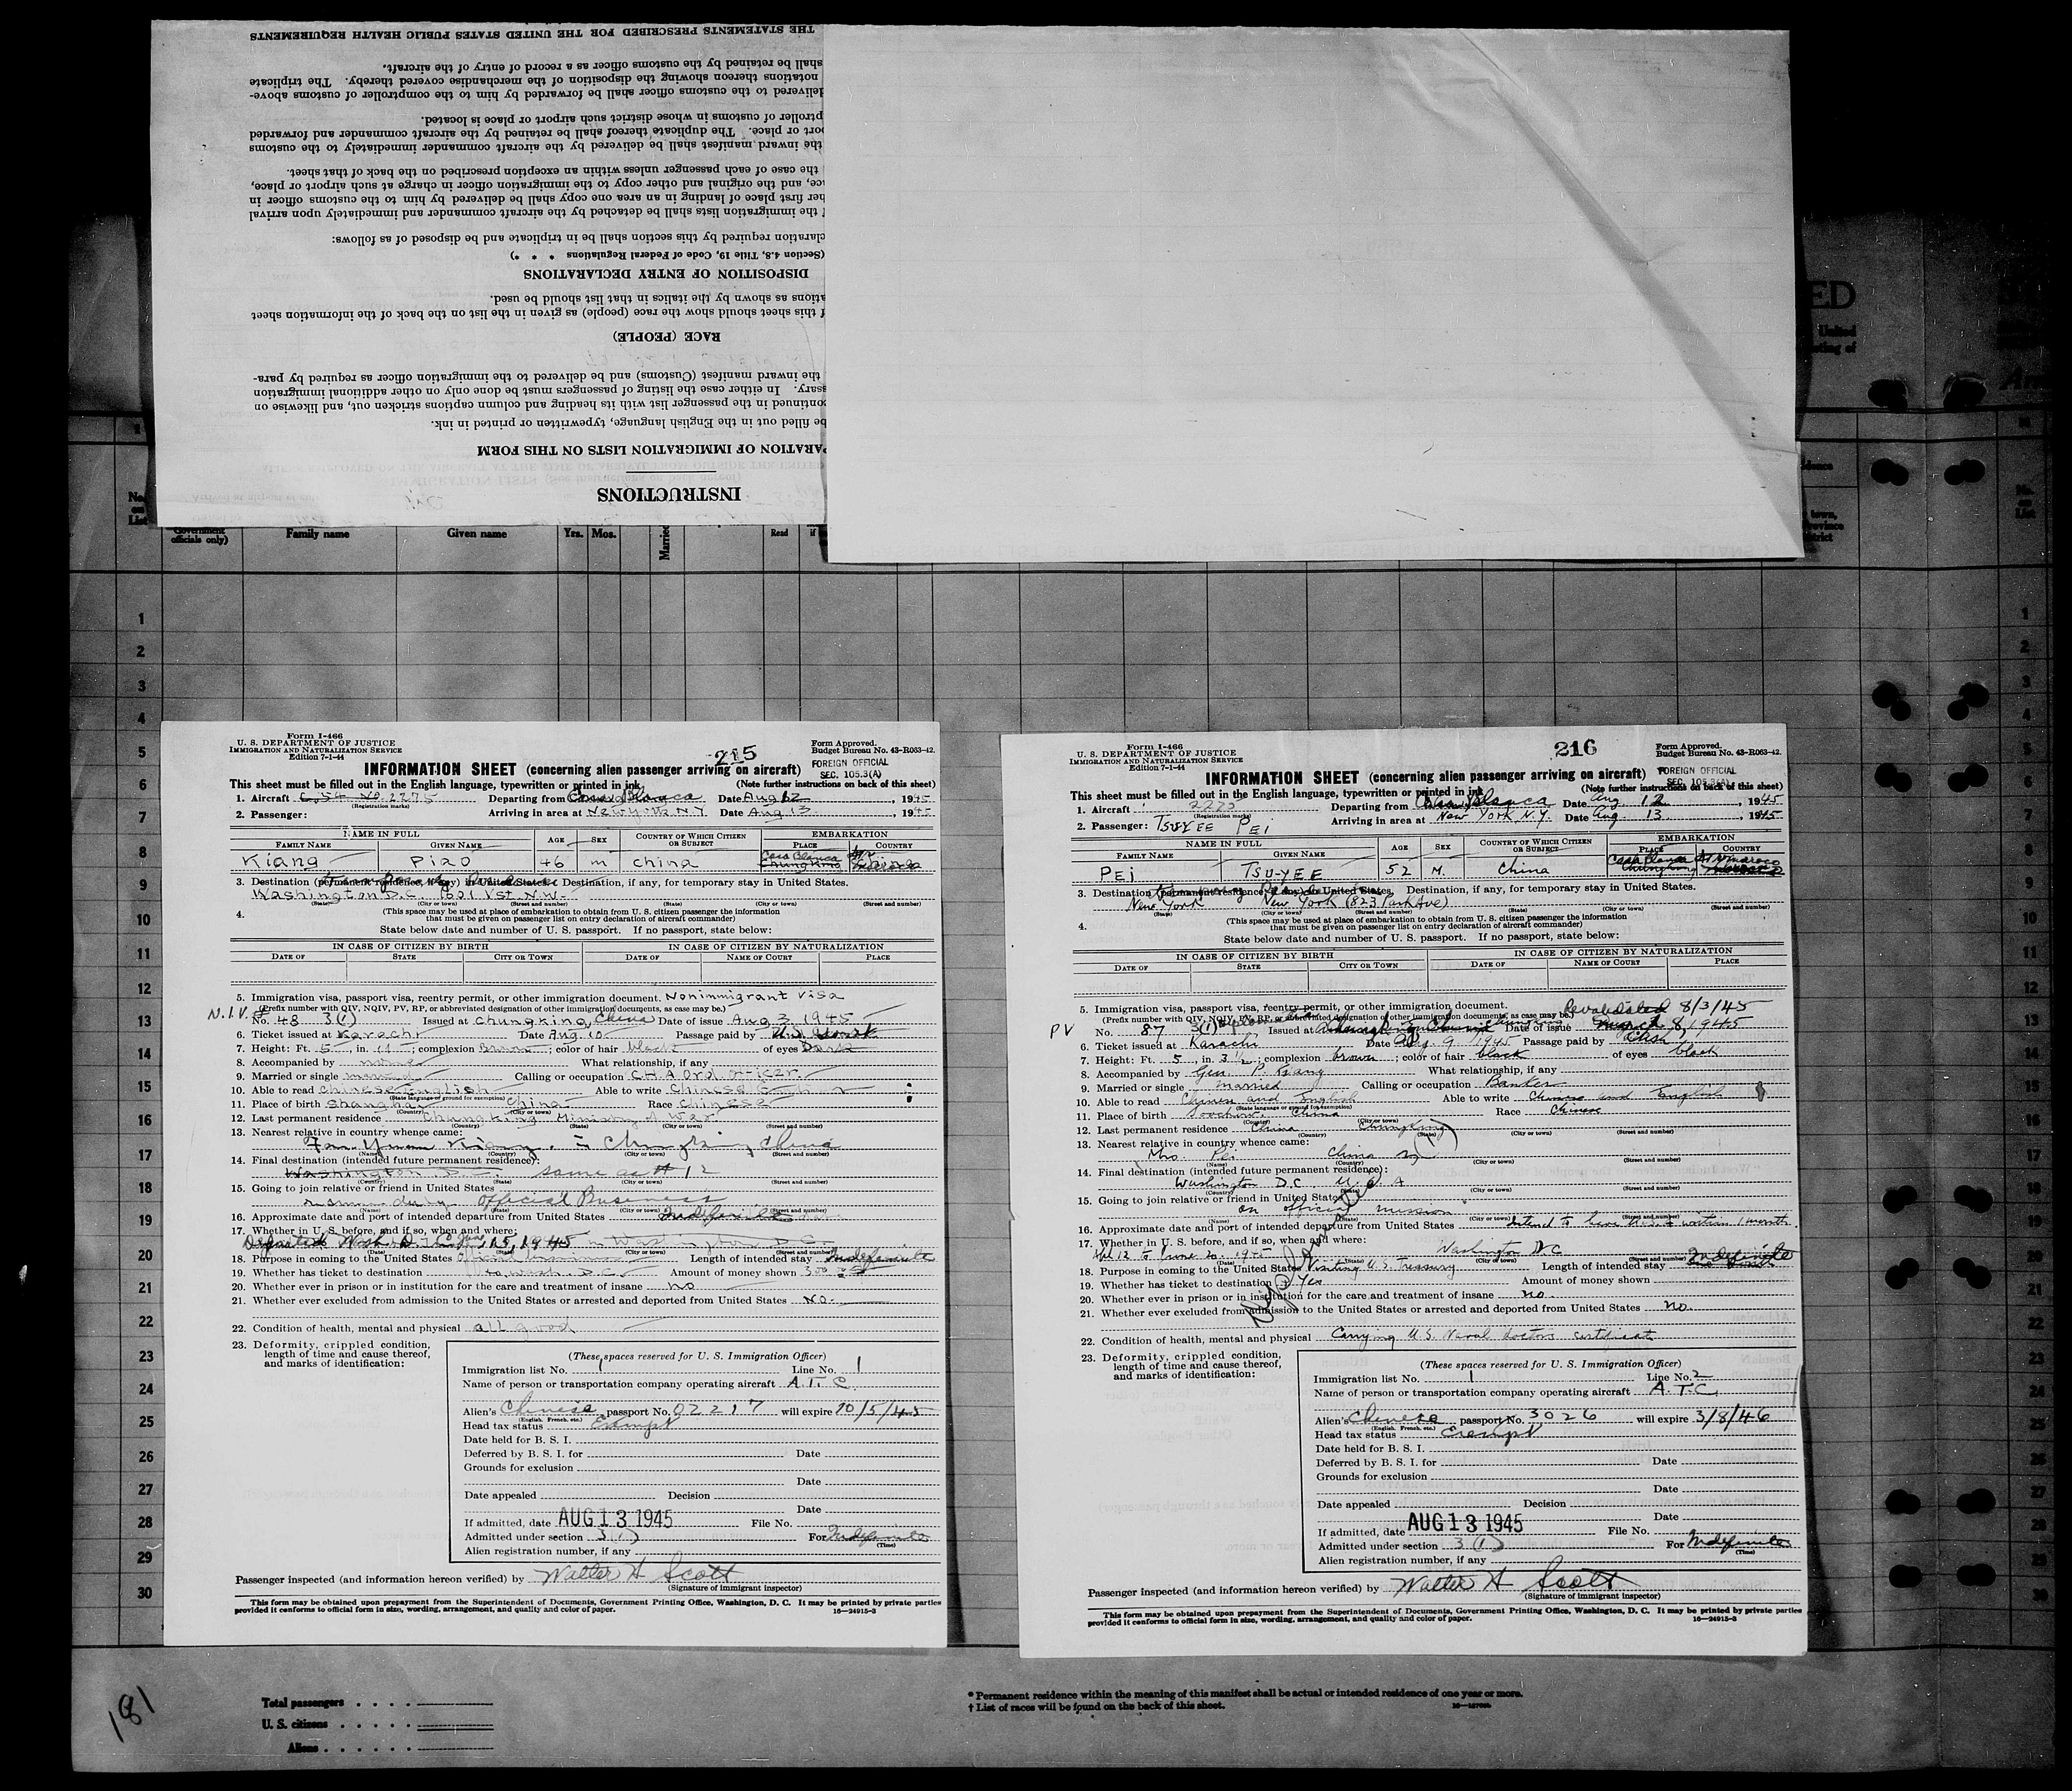 INSTRUCTIONS
PARATION OF IMMIGRATION LISTS ON THIS FORM
be filled out in the English language, typewritten or printed in ink.
continued in the passenger list with its heading and column captions stricken out, and likewise on
ssary. In either case the listing of passengers must be done only on other additional immigration
the inward manifest (Customs) and be delivered to the immigration officer as required by para-
RACE (PEOPLE)
f this sheet should show the race (people) as given in the list on the back of the information sheet
ations as shown by the italics in that list should be used.
DISPOSITION OF ENTRY DECLARATIONS
(Section 4.8, Title 19, Code of Federal Regulations * * *)
claration required by this section shall be in triplicate and be disposed of as follows:
f the immigration lists shall be detached by the aircraft commander and immediately upon arrival
her first place of landing in an area one copy shall be delivered by him to the customs officer in
ce, and the original and other copy to the immigration officer in charge at such airport or place,
the case of each passenger unless within an exception prescribed on the back of that sheet.
the inward manifest shall be delivered by the aircraft commander immediately to the customs
port or place. The duplicate thereof shall be retained by the aircraft commander and forwarded
ptroller of customs in whose district such airport or place is located.
delivered to the customs officer shall be forwarded by him to the comptroller of customs above-
notations thereon showing the disposition of the merchandise covered thereby. The triplicate
shall be retained by the customs officer as a record of entry of the aircraft.
THE STATEMENTS PRESCRIBED FOR THE UNITED STATES PUBLIC HEALTH REQUIREMENTS
officials only) Family name Given name Yrs. Mos. Married Read if
Form I-466
U. S. DEPARTMENT OF JUSTICE
IMMIGRATION AND NATURALIZATION SERVICE
Edition 7-1-44
215
Form Approved.
Budget Bureau No. 43-R063-42.
FOREIGN OFFICIAL
SEC. 105.3(A)
INFORMATION SHEET (concerning alien passenger arriving on aircraft)
This sheet must be filled out in the English language, typewritten or printed in ink. (Note further instructions on back of this sheet)
1. Aircraft C-54 No. 2275 Departing from Casa Blanca Date Aug 12, 1945
(Registration marks)
2. Passenger: Arriving in area at New York N.Y. Date Aug 13, 1945
NAME IN FULL AGE SEX COUNTRY OF WHICH CITIZEN OR SUBJECT EMBARKATION
FAMILY NAME GIVEN NAME PLACE COUNTRY
Kiang Piao 46 m China Casa Blanca
Chungking
3. Destination (permanent residence, if any) in United States. Destination, if any, for temporary stay in United States.
Washington D.C. 1601 V St. N.W.
(State) (City or town) (Street and number) (State) (City or town) (Street and number)
4. (This space may be used at place of embarkation to obtain from U. S. citizen passenger the information
that must be given on passenger list on entry declaration of aircraft commander)
State below date and number of U. S. passport. If no passport, state below:
IN CASE OF CITIZEN BY BIRTH IN CASE OF CITIZEN BY NATURALIZATION
DATE OF STATE CITY OR TOWN DATE OF NAME OF COURT PLACE
5. Immigration visa, passport visa, reentry permit, or other immigration document. Nonimmigrant Visa
N.I.V. (Prefix number with QIV, NQIV, PV, RP, or abbreviated designation of other immigration documents, as case may be.)
No. 48 3(1) Issued at Chungking China Date of issue Aug 3 1945
6. Ticket issued at Karachi Date Aug. 10 Passage paid by
7. Height: Ft. 5 in. 11; complexion Brown; color of hair black of eyes Dark
8. Accompanied by none What relationship, if any
9. Married or single married Calling or occupation CH.A Ord officer.
10. Able to read Chinese English Able to write Chinese English
(State language or ground for exemption)
11. Place of birth Shanghai China Race Chinese
12. Last permanent residence Chungking Ministry of War
(Country) (State) (City or town) (Street and number)
13. Nearest relative in country whence came:
Kiang in Chungking, China
(Name) (Country) (City or town) (Street and number)
14. Final destination (intended future permanent residence):
Washington D.C. same as # 12
(Country) (State) (City or town) (Street and number)
15. Going to join relative or friend in United States
official Business
16. Approximate date and port of intended departure from United States Indefinite
17. Whether in U. S. before, and if so, when and where:
Departed Wash. D.C. 15, 1945 in Washington D.C.
18. Purpose in coming to the United States Length of intended stay Indefinite
19. Whether has ticket to destination to Wash. D.C. Amount of money shown
20. Whether ever in prison or in institution for the care and treatment of insane no
21. Whether ever excluded from admission to the United States or arrested and deported from United States No.
22. Condition of health, mental and physical all good
23. Deformity, crippled condition,
length of time and cause thereof,
and marks of identification:
(These spaces reserved for U. S. Immigration Officer)
Immigration list No. 1 Line No. 1
Name of person or transportation company operating aircraft A.T.C.
Alien's Chinese passport No. 02217 will expire 10/5/45
(English, French, etc.)
Head tax status Exempt
Date held for B. S. I.
Deferred by B. S. I. for Date
Grounds for exclusion
Date
Date appealed Decision
Date
If admitted, date AUG 13 1945 File No.
Admitted under section 3(1) For Indefinite
(Time)
Alien registration number, if any
Passenger inspected (and information hereon verified) by Walter H Scott
(Signature of immigrant inspector)
This form may be obtained upon prepayment from the Superintendent of Documents, Government Printing Office, Washington, D. C. It may be printed by private parties
provided it conforms to official form in size, wording, arrangement, and quality and color of paper. 16—24915-3
Form I-466
U. S. DEPARTMENT OF JUSTICE
IMMIGRATION AND NATURALIZATION SERVICE
Edition 7-1-44
216
Form Approved.
Budget Bureau No. 43-R063-42.
FOREIGN OFFICIAL
SEC. 105.3(A)
INFORMATION SHEET (concerning alien passenger arriving on aircraft)
This sheet must be filled out in the English language, typewritten or printed in ink. (Note further instructions on back of this sheet)
1. Aircraft 2275 Departing from Casa Blanca Date Aug 12, 1945
(Registration marks)
2. Passenger: TSUYEE PEI Arriving in area at New York N.Y. Date Aug. 13, 1945
NAME IN FULL AGE SEX COUNTRY OF WHICH CITIZEN OR SUBJECT EMBARKATION
FAMILY NAME GIVEN NAME PLACE COUNTRY
PEI TSU-YEE 52 M. China Casa Blanca
Chungking
3. Destination (permanent residence, if any) in United States. Destination, if any, for temporary stay in United States.
New York New York (823 Park Ave)
(State) (City or town) (Street and number) (State) (City or town) (Street and number)
4. (This space may be used at place of embarkation to obtain from U. S. citizen passenger the information
that must be given on passenger list on entry declaration of aircraft commander)
State below date and number of U. S. passport. If no passport, state below:
IN CASE OF CITIZEN BY BIRTH IN CASE OF CITIZEN BY NATURALIZATION
DATE OF STATE CITY OR TOWN DATE OF NAME OF COURT PLACE
5. Immigration visa, passport visa, reentry permit, or other immigration document. Revalidated 8/3/45
(Prefix number with QIV, NQIV, PV, RP, or abbreviated designation of other immigration documents, as case may be.)
PV No. 87 3(1) Issued at Chungking China Date of issue March 8, 1945
6. Ticket issued at Karachi Date Aug. 9 1945 Passage paid by Cash
7. Height: Ft. 5, in. 3 ½; complexion brown; color of hair black of eyes black
8. Accompanied by Gen. P. Kiang What relationship, if any
9. Married or single married Calling or occupation Banker
10. Able to read Chinese and English Able to write Chinese and English
(State language or ground for exemption)
11. Place of birth Soochow, China Race Chinese
12. Last permanent residence China Chungking
(Country) (State) (City or town) (Street and number)
13. Nearest relative in country whence came:
Mrs. Pei China
(Name) (Country) (City or town) (Street and number)
14. Final destination (intended future permanent residence):
Washington D.C. U.S.A
(Country) (State) (City or town) (Street and number)
15. Going to join relative or friend in United States
on official mission
16. Approximate date and port of intended departure from United States intend to leave U.S.A. within 1 month.
17. Whether in U. S. before, and if so, when and where:
12 to June 20, 1945 Washington DC
18. Purpose in coming to the United States Visiting U.S. Treasury Length of intended stay Indefinite
19. Whether has ticket to destination Yes Amount of money shown
20. Whether ever in prison or in institution for the care and treatment of insane no.
21. Whether ever excluded from admission to the United States or arrested and deported from United States no.
22. Condition of health, mental and physical Carrying U.S. Naval doctors certificate
23. Deformity, crippled condition,
length of time and cause thereof,
and marks of identification:
(These spaces reserved for U. S. Immigration Officer)
Immigration list No. 1 Line No. 2
Name of person or transportation company operating aircraft A.T.C.
Alien's Chinese passport No. 3026 will expire 3/8/46
(English, French, etc.)
Head tax status Exempt
Date held for B. S. I.
Deferred by B. S. I. for Date
Grounds for exclusion
Date
Date appealed Decision
Date
If admitted, date AUG 13 1945 File No.
Admitted under section 3(1) For Indefinite
(Time)
Alien registration number, if any
Passenger inspected (and information hereon verified) by Walter H Scott
(Signature of immigrant inspector)
This form may be obtained upon prepayment from the Superintendent of Documents, Government Printing Office, Washington, D. C. It may be printed by private parties
provided it conforms to official form in size, wording, arrangement, and quality and color of paper. 16—24915-3
181
Total passengers
U. S. citizens
Aliens
* Permanent residence within the meaning of this manifest shall be actual or intended residence of one year or more.
† List of races will be found on the back of this sheet.